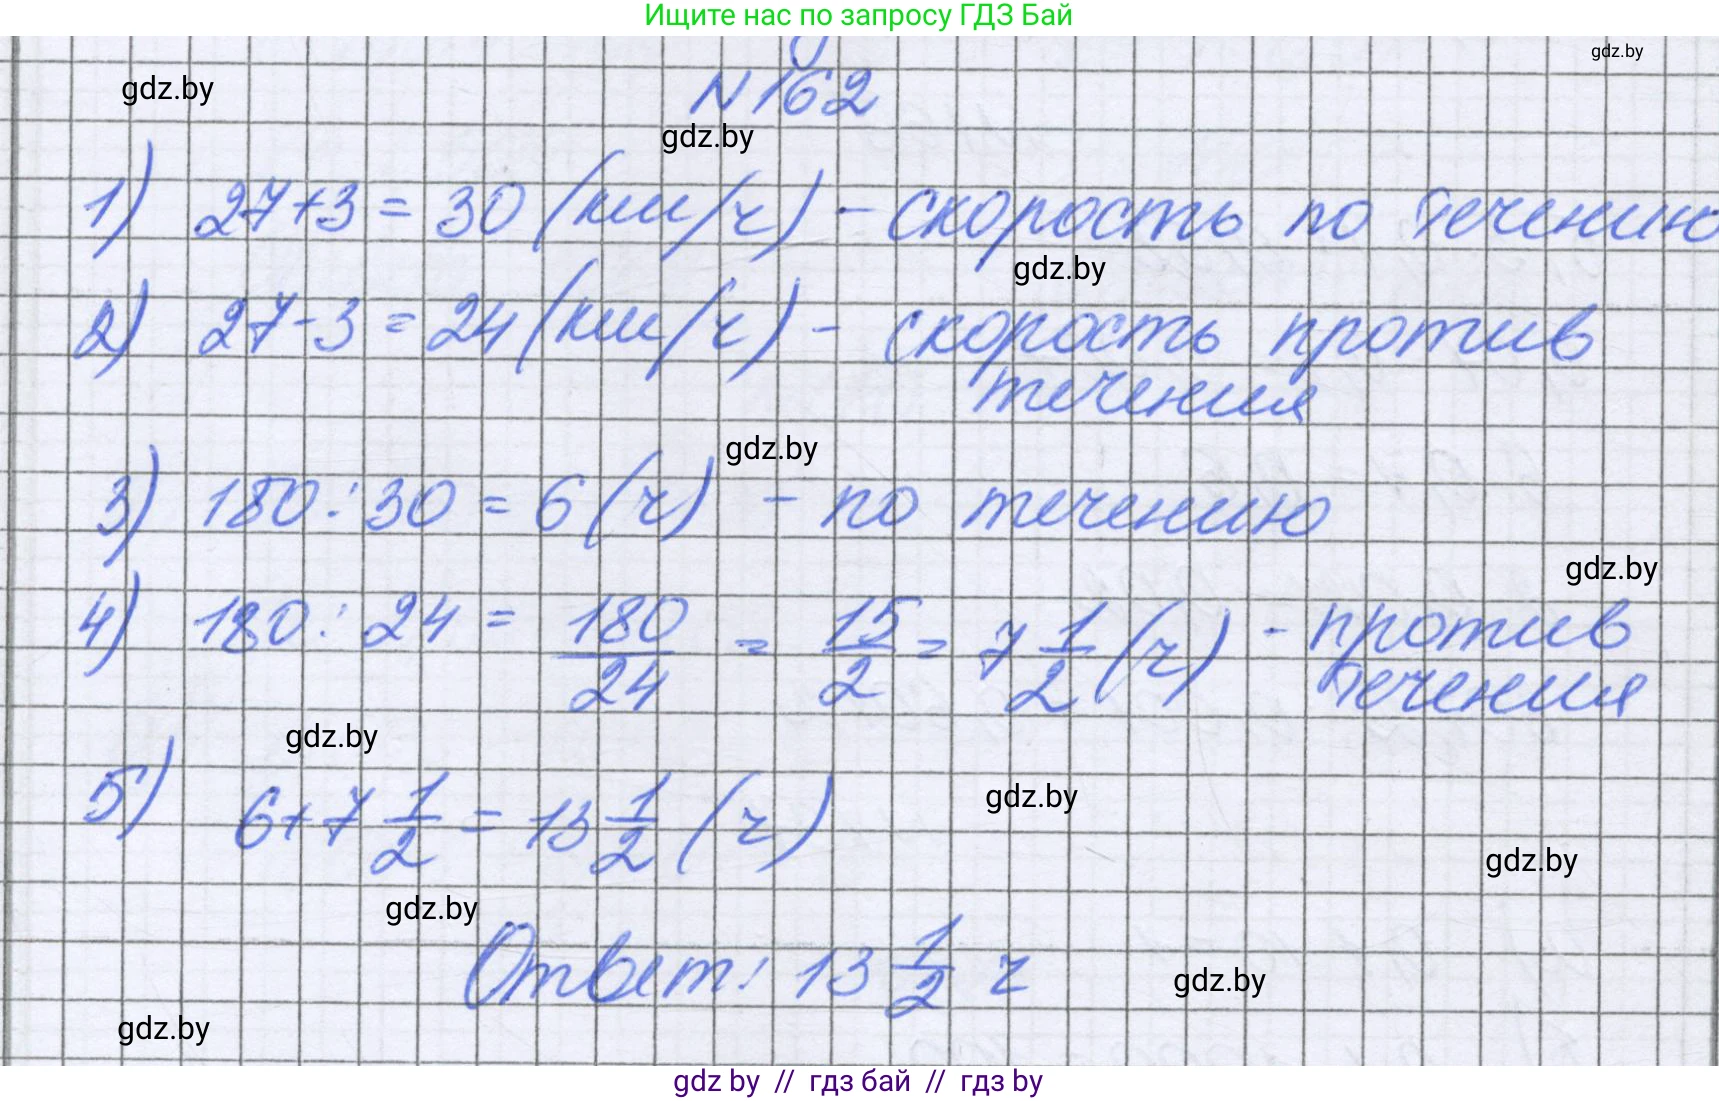 Ищите нас по запросу ГДЗ Бай
gdz.by
gdz.by
N 162
gdz.by
1) 27+3 = 30 (км/ч) - скорость по течению
gdz.by
2) 27-3 = 24 (км/ч) - скорость против
течения
gdz.by
3) 180 : 30 = 6 (ч) - по течению
gdz.by
4) 180 : 24 = 180/24 = 15/2 = 7 1/2 (ч) - против
течения
gdz.by
5) 6+7 1/2 = 13 1/2 (ч)
gdz.by
gdz.by
gdz.by
Ответ: 13 1/2 ч
gdz.by
gdz.by
gdz by // гдз бай // гдз by